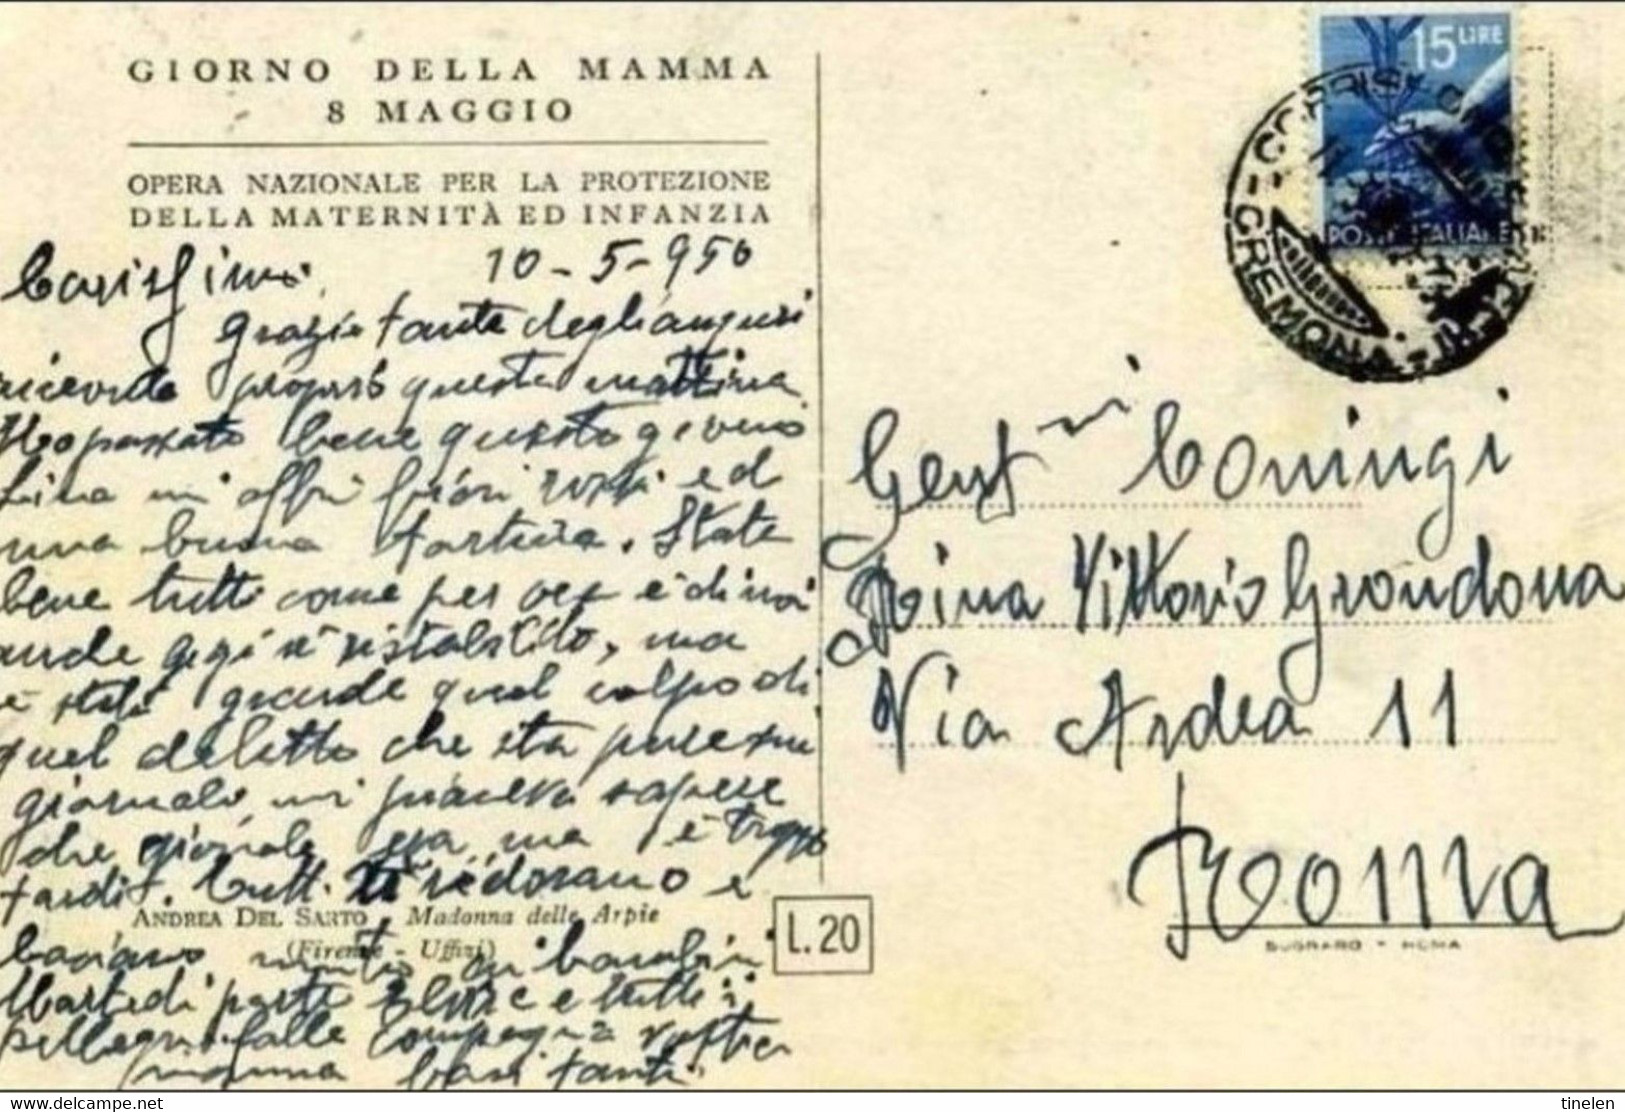 GIORNO DELLA MAMMA
8 MAGGIO
OPERA NAZIONALE PER LA PROTEZIONE
DELLA MATERNITÀ ED INFANZIA
Carissimi 10-5-950
grazie tante degli auguri
ricevuti proprio questa mattina
Ho passato bene questo giorno
Lina mi offrì fiori rossi ed
una buona tortina. State
bene tutti come per ora è di noi
anche gigi si è ristabilito, ma
è stato grande quel colpo di
quel delitto che sta
giornale mi piaceva sapere
che giornale era ma è troppo
tardi. Tutti vi adorano e
baciano i bambini
Martedi parte e tutti i
pellegrini. falle compagnia vostra
mamma baci tanti
ANDREA DEL SARTO - Madonna delle Arpie
(Firenze - Uffizi)
L. 20
15 LIRE
POSTE ITALIANE
CREMONA
Gent mi Coniugi
Rina Vittorio Grondona
Via Ardea 11
Roma
ROMA
www.delcampe.net
tinelen